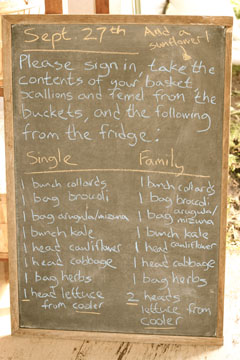 Sept. 27th
And a
sunflower!
Please sign in, take the
contents of your basket
scallions and fennel from the
buckets, and the following
from the fridge:
Single
1 bunch collards
1 bag broccoli
1 bag arugula/mizuna
1 bunch kale
1 head cauliflower
1 head cabbage
1 bag herbs
1 head lettuce
from cooler
Family
1 bunch collards
1 bag broccoli
1 bag arugula/
mizuna
1 bunch kale
1 head cauliflower
1 head cabbage
1 bag herbs
2 heads
lettuce from
cooler